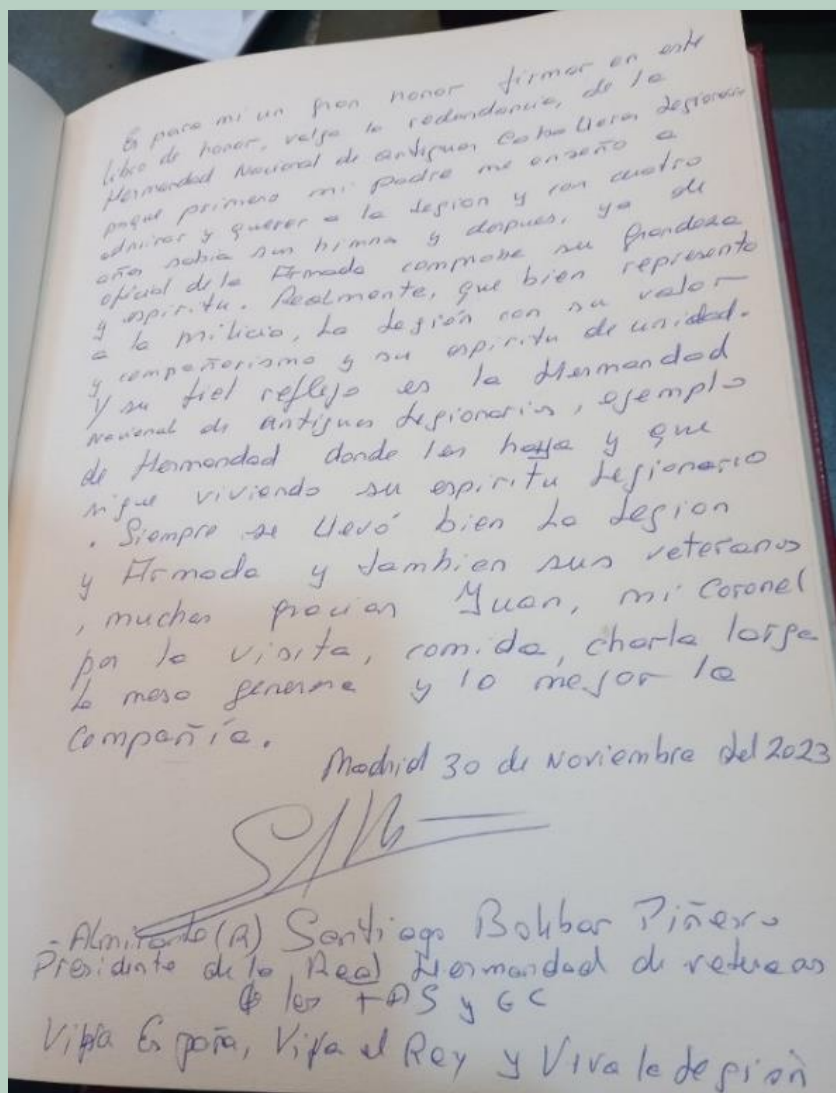 Es para mi un gran honor firmar en este
libro de honor, valga la redundancia, de la
Hermandad Nacional de antiguos Caballeros Legionarios
porque primero mi padre me enseño a
admirar y querer a la Legion y con cuatro
años sabia sus himnos y despues, ya de
oficial de la Armada comprobe su grandeza
y espiritu. Realmente, que bien representa
a la milicia, La Legión con su valor
y compañerismo y su espiritu de unidad.
Y su fiel reflejo es la Hermandad
Nacional de antiguos Legionarios, ejemplo
de Hermandad donde las haya y que
sigue viviendo su espiritu Legionario
. Siempre se llevó bien La Legion
y Armada y tambien sus veteranos
, muchas gracias Juan, mi Coronel
por la visita, comida, charla larga
la mesa generosa y lo mejor la
compañía.
Madrid 30 de Noviembre del 2023
Almirante (R) Santiago Bolibar Piñeiro
Presidente de la Real Hermandad de veteranos
de las FAS y GC
Viva España, Viva el Rey y Viva la Legión